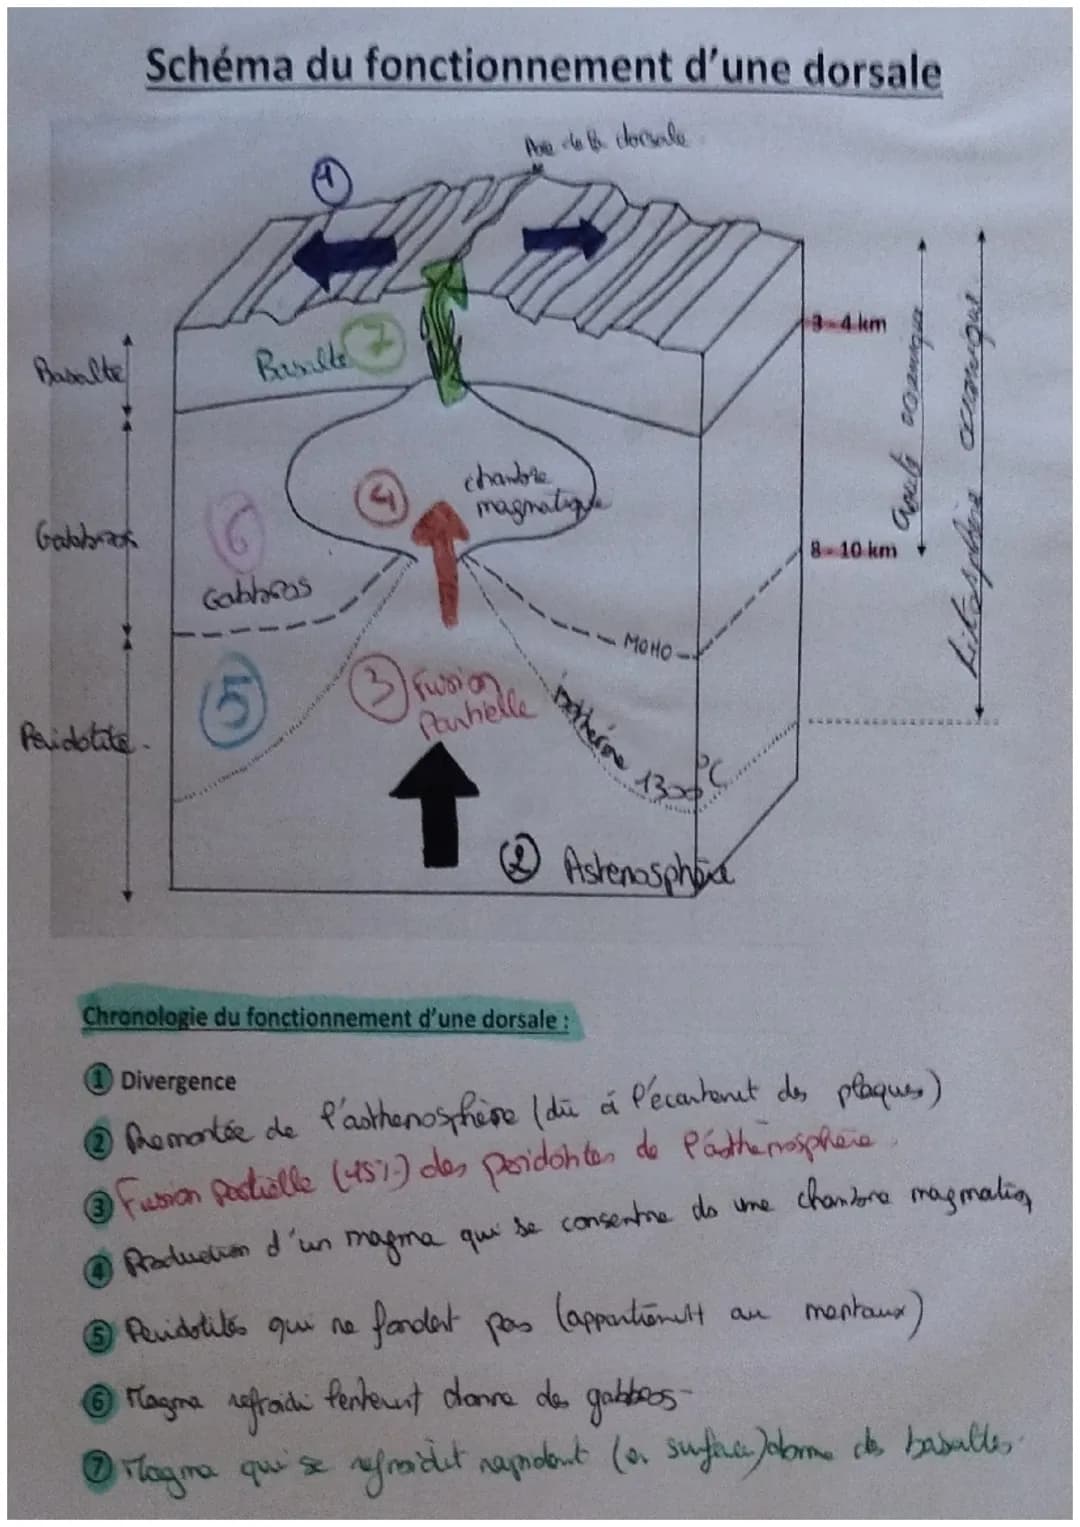 Schéma du fonctionnement d'une dorsale
Axe de la dorsale
1
3-4 km
Basalte
Basalte 7
croute océanique
Lithosphère océanique
chambre
magmatique
4
6
Gabbros
8-10 km
Gabbros
MOHO
5
3 Fusion
Partielle
isotherme 1300°C
Peridotite
2 Astenosphère
Chronologie du fonctionnement d'une dorsale :
1 Divergence
2 Remontée de l'asthénosphère (dû à l'écartement des plaques)
3 Fusion partielle (15%) des peridotites de l'asthénosphère
4 Production d'un magma qui se consentre ds une chambre magmatiq
5 Peridotites qui ne fondent pas (appartiennent au manteaux)
6 Magma refroidi lentement donne des gabbros
7 Magma qui se refroidit rapidement (en surface) donne des basaltes.